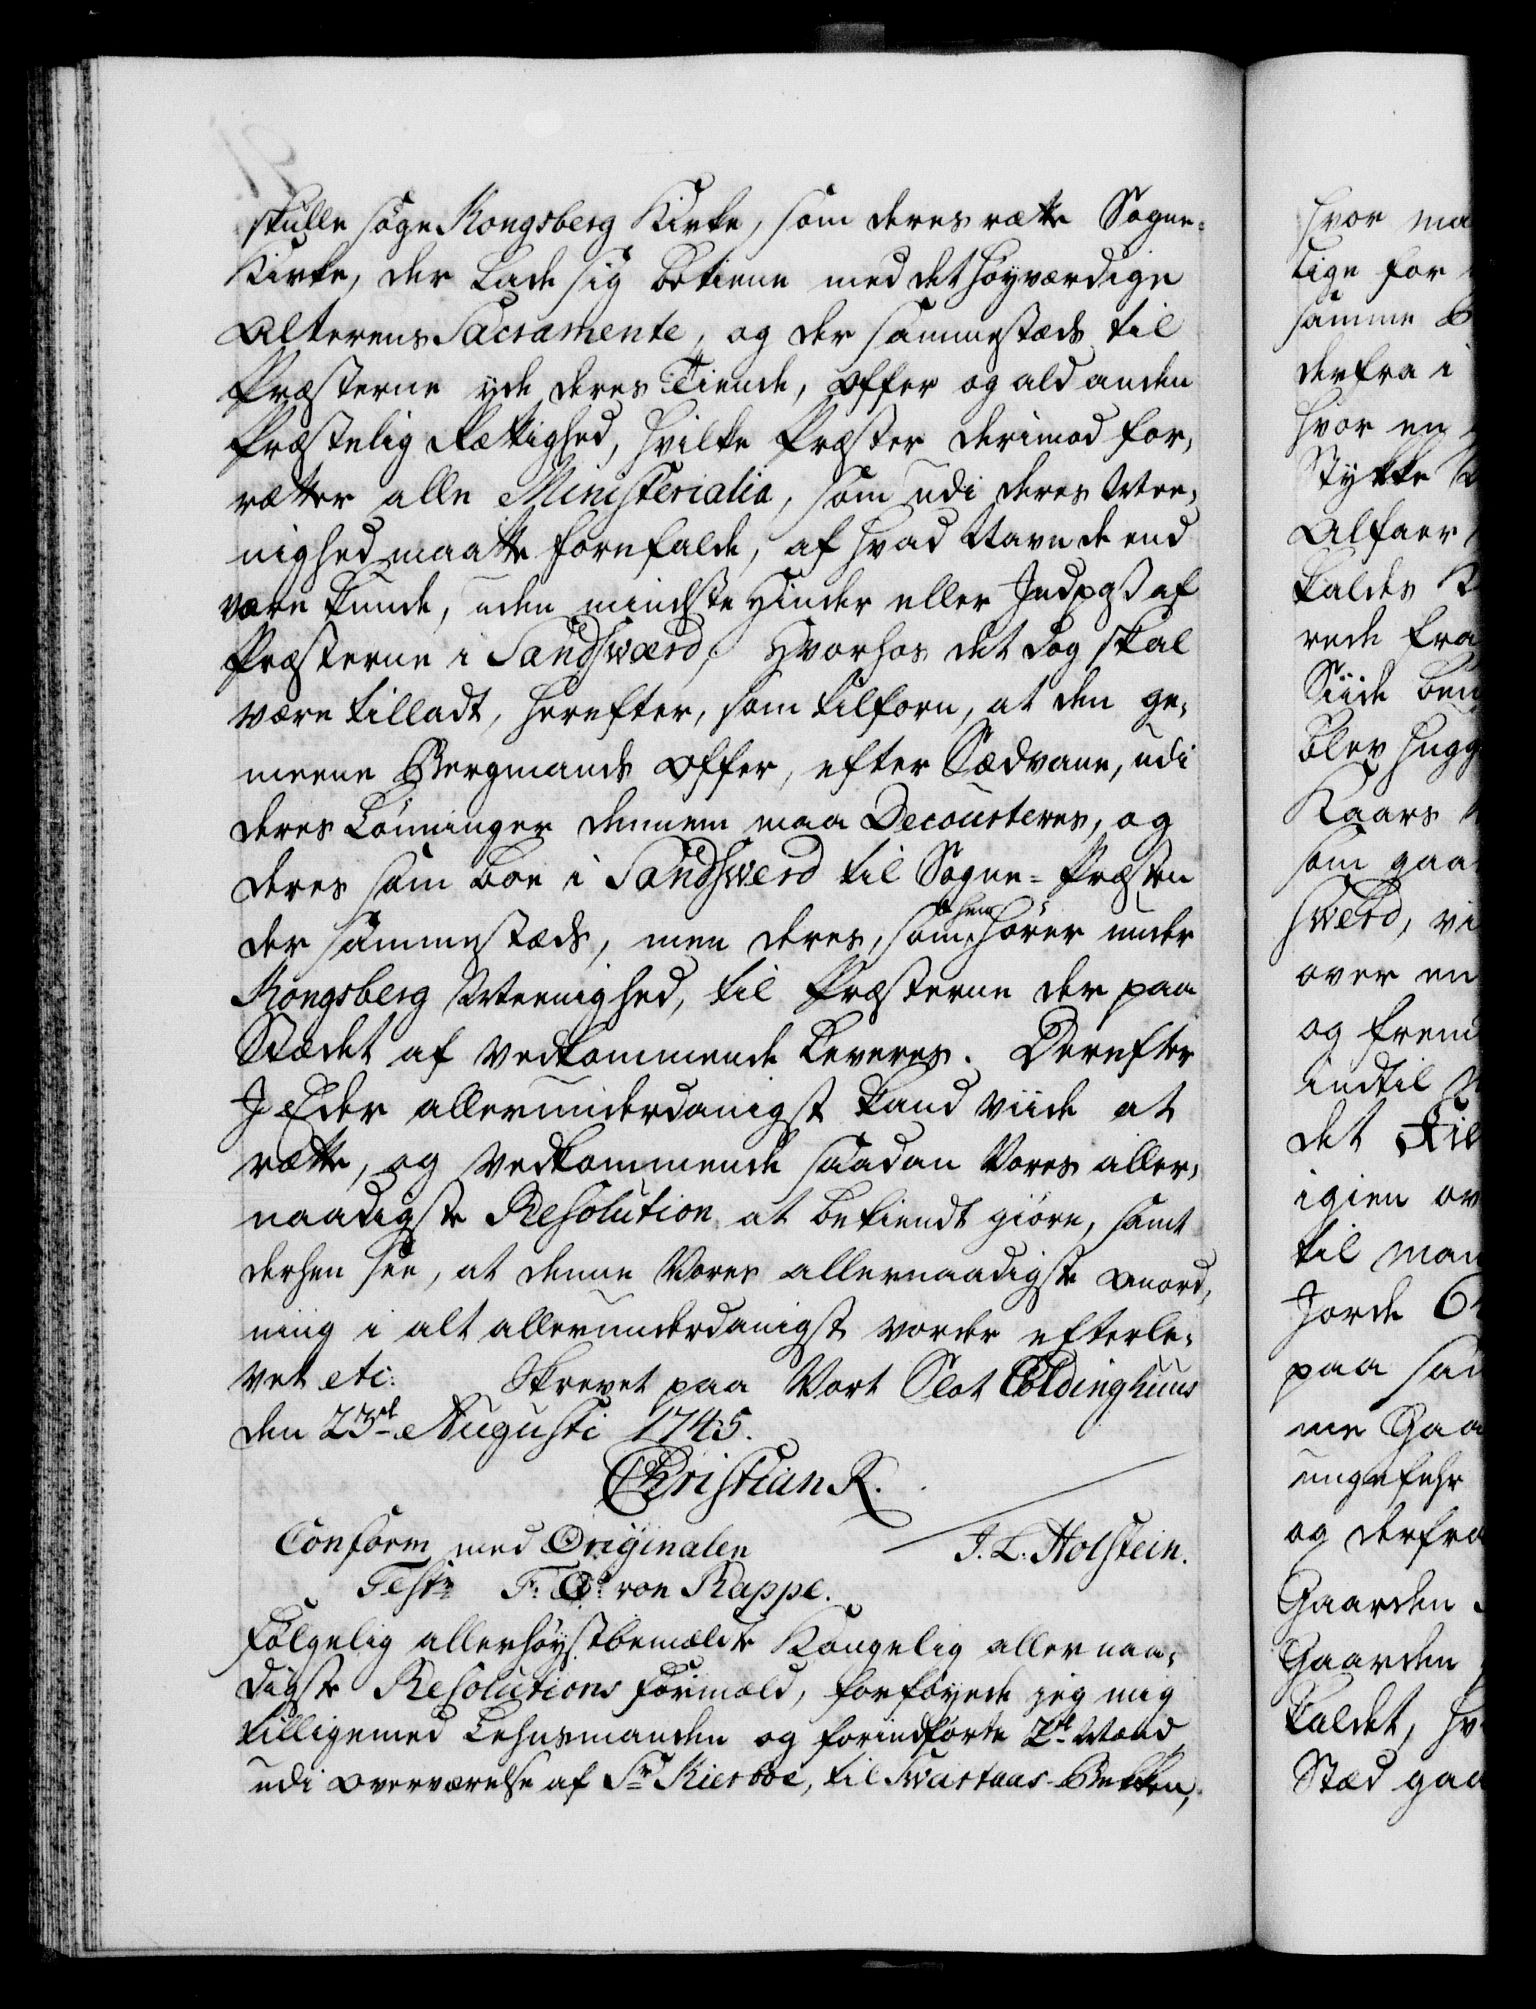 skulle søge Kongsberg Kirke, som deres rætte Sogne-
Kirke, der lade sig betiene med det høyværdige
Alterens Sacramente, og der sammestæds til
Præsterne yde deres Tiende, Offer og ald anden
Præstelig Rættighed, hvilke Præster derimod for,
rætter alle Ministerialia, som udi deres Mee,
nighed maatte forefalde, af hvad Navn de end
være kunde, uden mindste Hinder eller Indpas af
Præsterne i Sandsværd; Hvorhos det dog skal
være tilladt, herefter, som tilforn, at den ge,
meene Bergmands Offer, efter Sædvane, udi
deres Lønninger dennem maa Decourteres, og
deres som boe i Sandsverd til Sogne-Præsten
der sammestæds, men deres, som henhører under
Kongsberg Meenighed, til Præsterne der paa
Stædet af vedkommende leveres. Derefter
I Eder allerunderdanigst kand viide at
rætte, og vedkommende saadan Vores aller,
naadigste Resolution at bekiendt giøre, samt
derhen see, at denne Vores allernaadigste Anord,
ning i alt allerunderdanigst vorder efterle,
vet etc: Skrevet paa Vort Slot Coldinghuus
den 23de Augusti 1745.
Christian R.
J. L. Holstein.
Conform med Originalen
Test: F: O: von Rappe.
Følgelig allerhøystbemælte Kongelig allernaa,
digste Resolutions formæld, forføyede jeg mig
tilligemed Lehnsmanden og forindførte 2de Mænd
udi overværelse af Sr Kierboe, til Svartaas-Bekken,
hvor ma
lige for
samme B
derfra i
hvor en
Stykke
Alfaer
kaldes K
rede fra
Siide ben
blev hugg
Kaars
som gaa
sverd, vi
over en
og frem
indtil
det Fie
igien ov
til man
Jorde
paa sam
me Gaa
ungefehr
og derfra
Gaarden
Gaarden
kaldet, hv
Stæd gaa